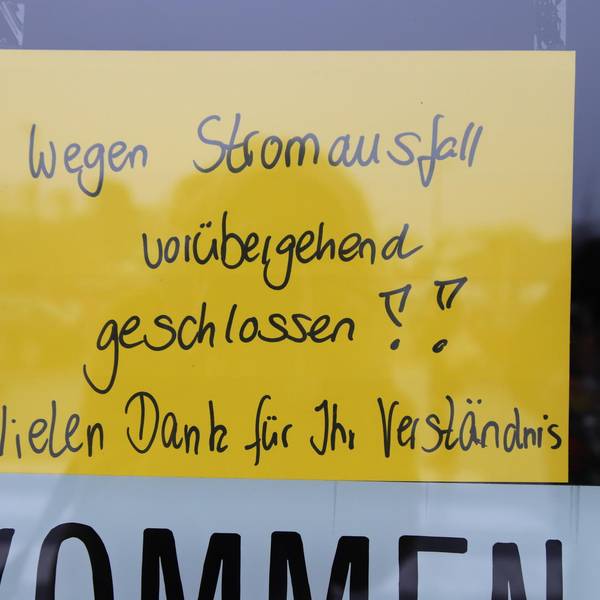 Wegen Stromausfall
vorübergehend
geschlossen !!
Vielen Dank für Ihr Verständnis
KOMMEN